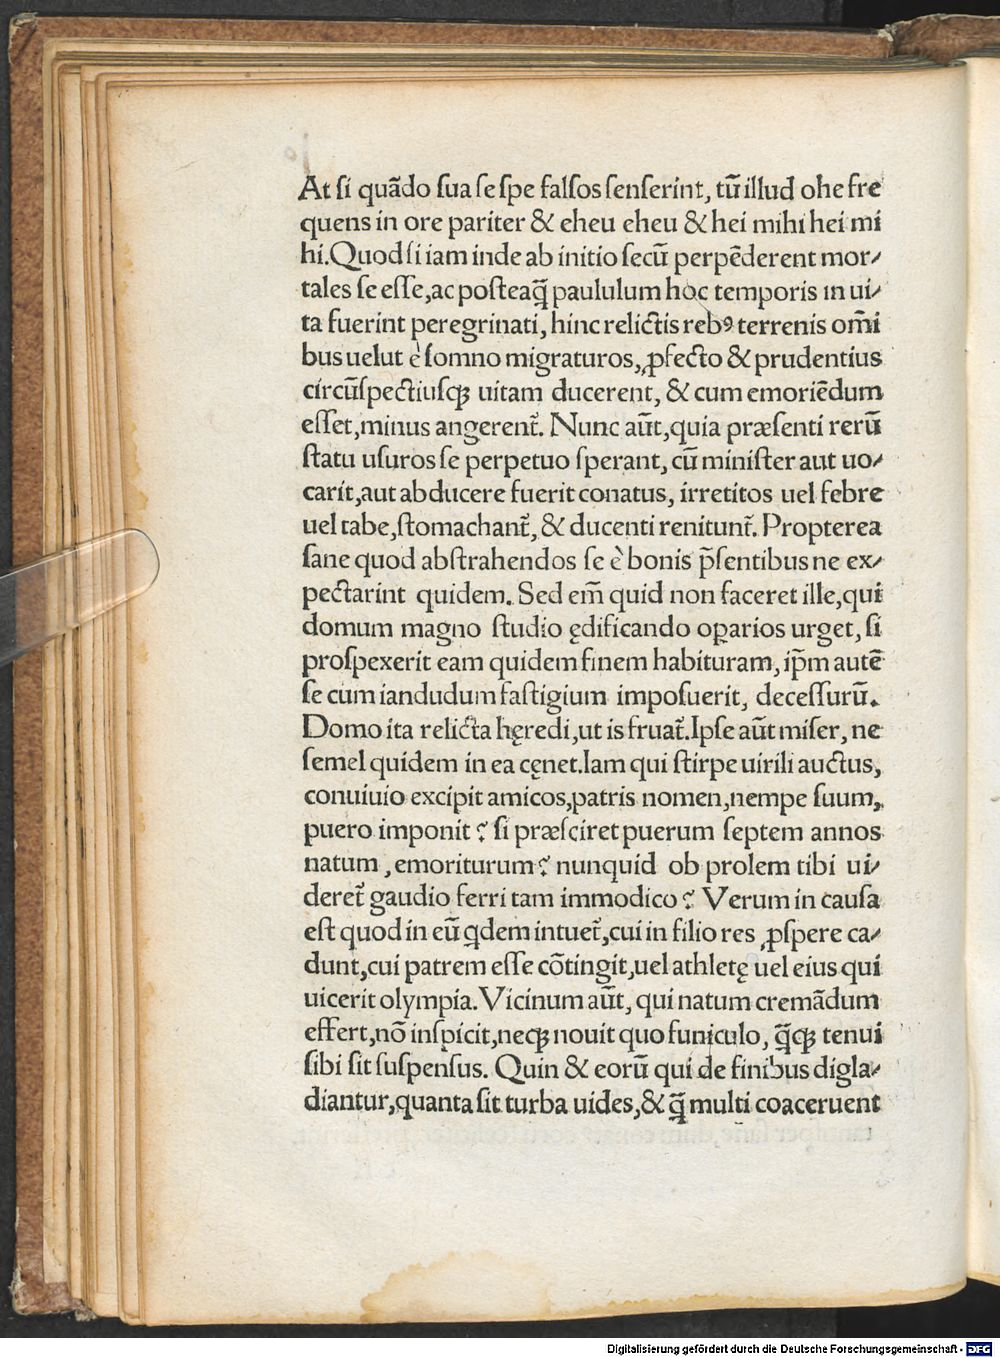 At ſi quãdo ſua ſe ſpe falſos ſenſerint, tũ illud ohe fre
quens in ore pariter & eheu eheu & hei mihi hei mi
hi. Quod ſi iam inde ab initio ſecũ perpẽderent mor⸗
tales ſe eſſe, ac poſteaq̃ paululum hoc temporis in ui⸗
ta fuerint peregrinati, hinc relictis rebꝰ terrenis om̃i
bus uelut è ſomno migraturos, ꝓfecto & prudentius
circũſpectiuſqꝫ uitam ducerent, & cum emoriẽdum
eſſet, minus angerent᷑. Nunc aũt, quia præſenti rerũ
ſtatu uſuros ſe perpetuo ſperant, cũ miniſter aut uo⸗
carit, aut abducere fuerit conatus, irretitos uel febre
uel tabe, ſtomachant᷑, & ducenti renitunt᷑. Propterea
ſane quod abſtrahendos ſe è bonis p̃ſentibus ne ex⸗
pectarint quidem. Sed em̃ quid non faceret ille, qui
domum magno ſtudio ędificando oꝑarios urget, ſi
proſpexerit eam quidem finem habituram, ip̃m autẽ
ſe cum iandudum faſtigium impoſuerit, deceſſurũ.
Domo ita relicta hęredi, ut is fruat᷑. Ipſe aũt miſer, ne
ſemel quidem in ea cęnet. Iam qui ſtirpe uirili auctus,
conuiuio excipit amicos, patris nomen, nempe ſuum,
puero imponit ? ſi præſciret puerum ſeptem annos
natum, emoriturum ? nunquid ob prolem tibi ui⸗
deret᷑ gaudio ferri tam immodico ? Verum in cauſa
eſt quod in eũ q̇dem intuet᷑, cui in filio res ꝓſpere ca⸗
dunt, cui patrem eſſe cõtingit, uel athletę uel eius qui
uicerit olympia. Vicinum aũt, qui natum cremãdum
effert, nõ inſpicit, neqꝫ nouit quo funiculo, q̃qꝫ tenui
ſibi ſit ſuſpenſus. Quin & eorũ qui de finibus digla⸗
diantur, quanta ſit turba uides, & q̃ multi coaceruent
Digitalisierung gefördert durch die Deutsche Forschungsgemeinschaft - DFG